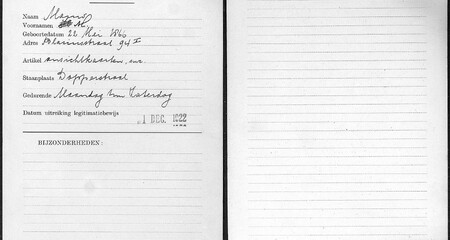 Naam
Voornamen M.
Geboortedatum 22 Mei
Adres 94 I
Artikel ansichtkaarten, enz.
Staanplaats Dapperstraat
Gedurende Maandag t/m Zaterdag
Datum uitreiking legitimatiebewijs 1 DEC. 1922
BIJZONDERHEDEN: